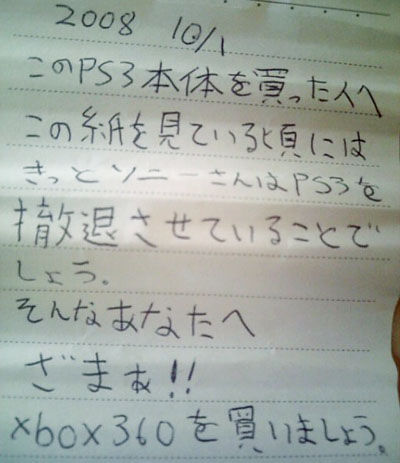 2008 10/1
このPS3本体を買った人へ
この紙を見ている頃には
きっとソニーさんはPS3を
撤退させていることで
しょう。
そんなあなたへ
ざまぁ!!
xbox360を買いましょう。